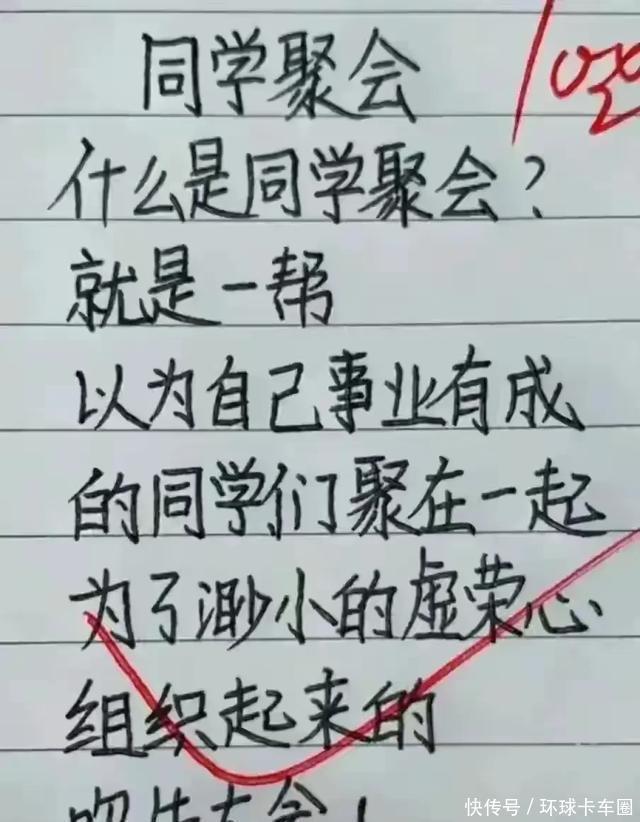 同学聚会
什么是同学聚会？
就是一帮
以为自己事业有成
的同学们聚在一起
为了渺小的虚荣心
组织起来的
吹牛大会！
快传号／环球卡车圈